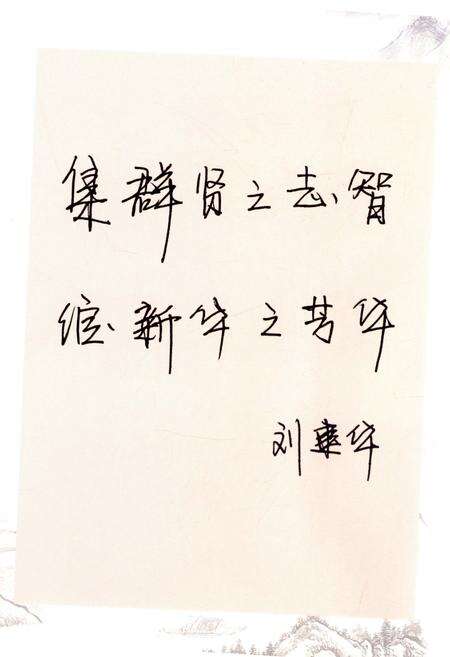 集群贤之志智
绽新华之芳华
刘 华